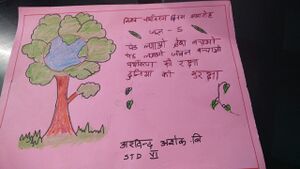 विश्व पर्यावरण दिवस
जून - 5
पेड़ लगाओ देश बचाओ
पेड़ लगाओ जीवन बचाओ
पर्यावरण की रक्षा
दुनिया की सुरक्षा
अरविन्द अशोक बि
STD VI